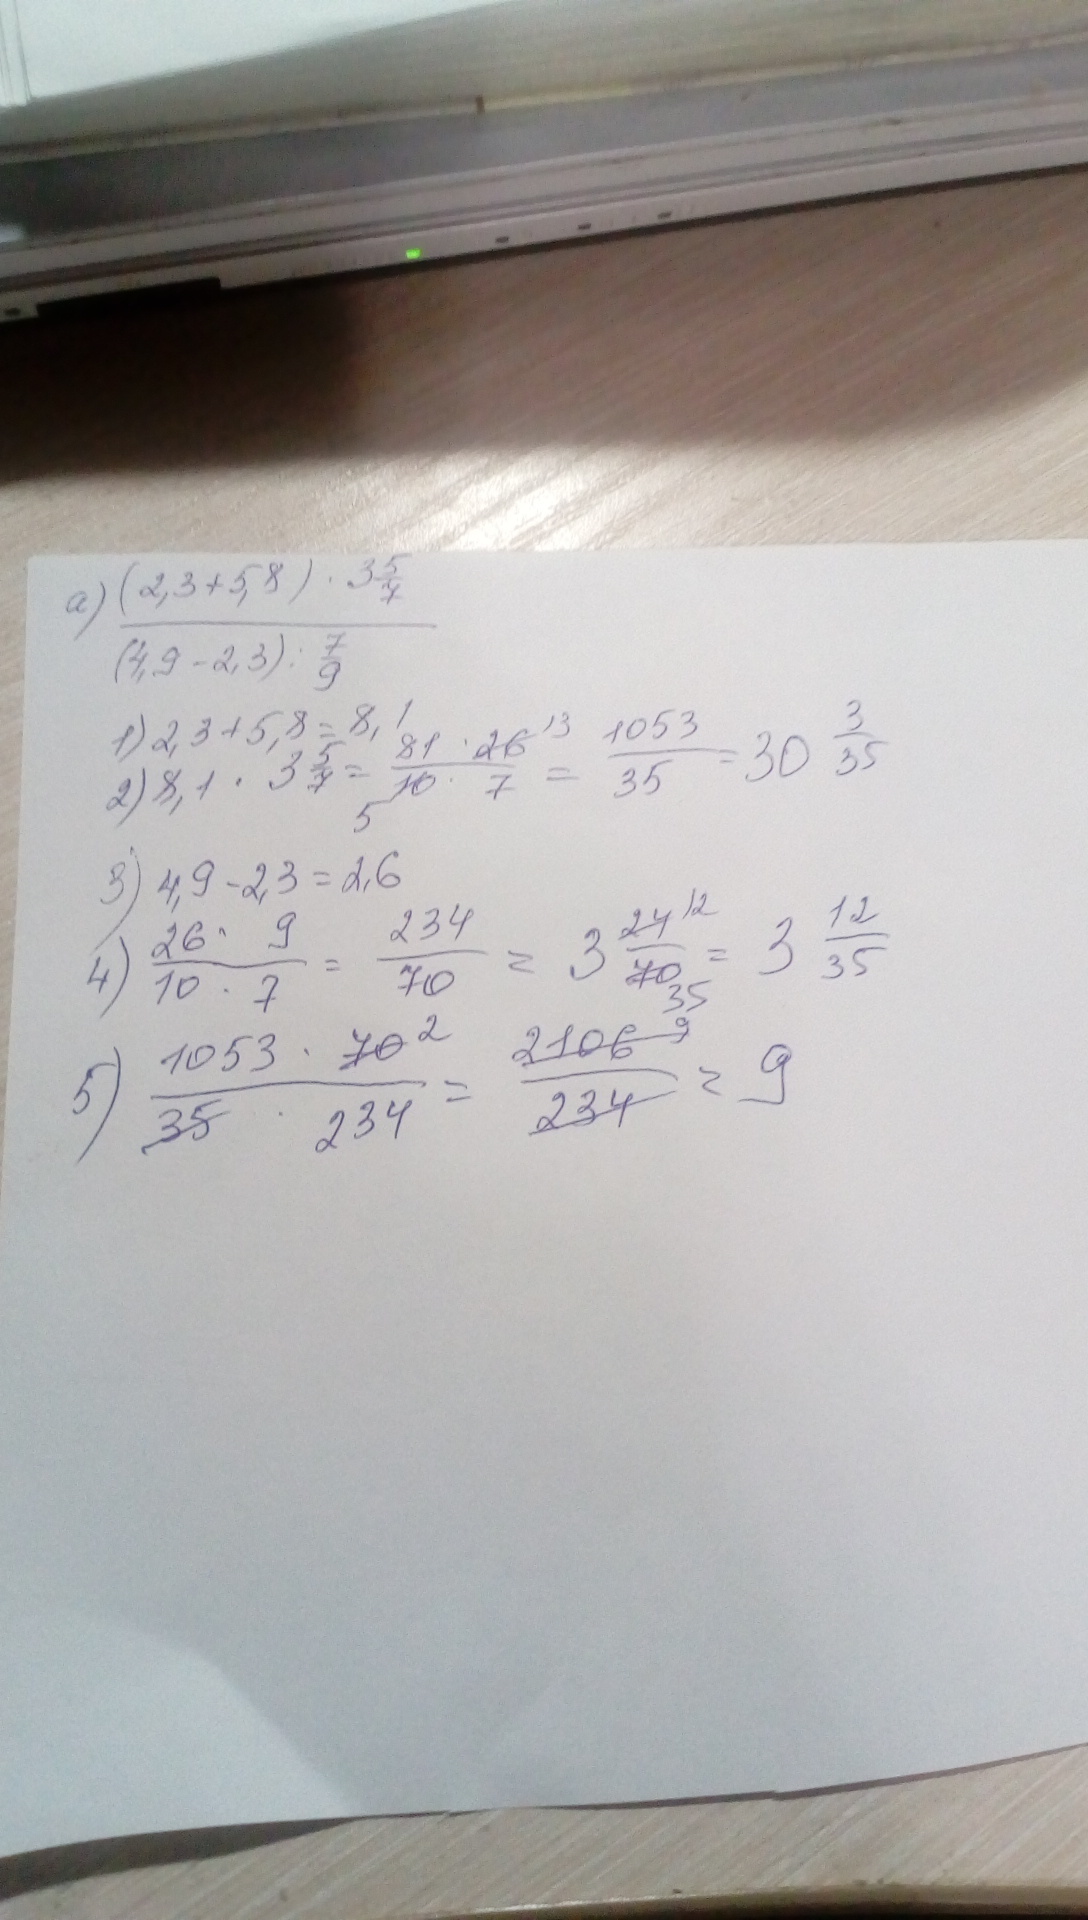 а) (2,3+5,8) · 3 5/7
(4,9-2,3) : 7/9
1) 2,3+5,8=8,1
2) 8,1 · 3 5/7 = 81 · 26 13 / 10 · 7 5 = 1053/35 = 30 3/35
3) 4,9-2,3=2,6
4) 26 · 9 / 10 · 7 = 234/70 = 3 24 12 / 70 35 = 3 12/35
5) 1053 · 70 2 / 35 · 234 = 2106 9 / 234 = 9